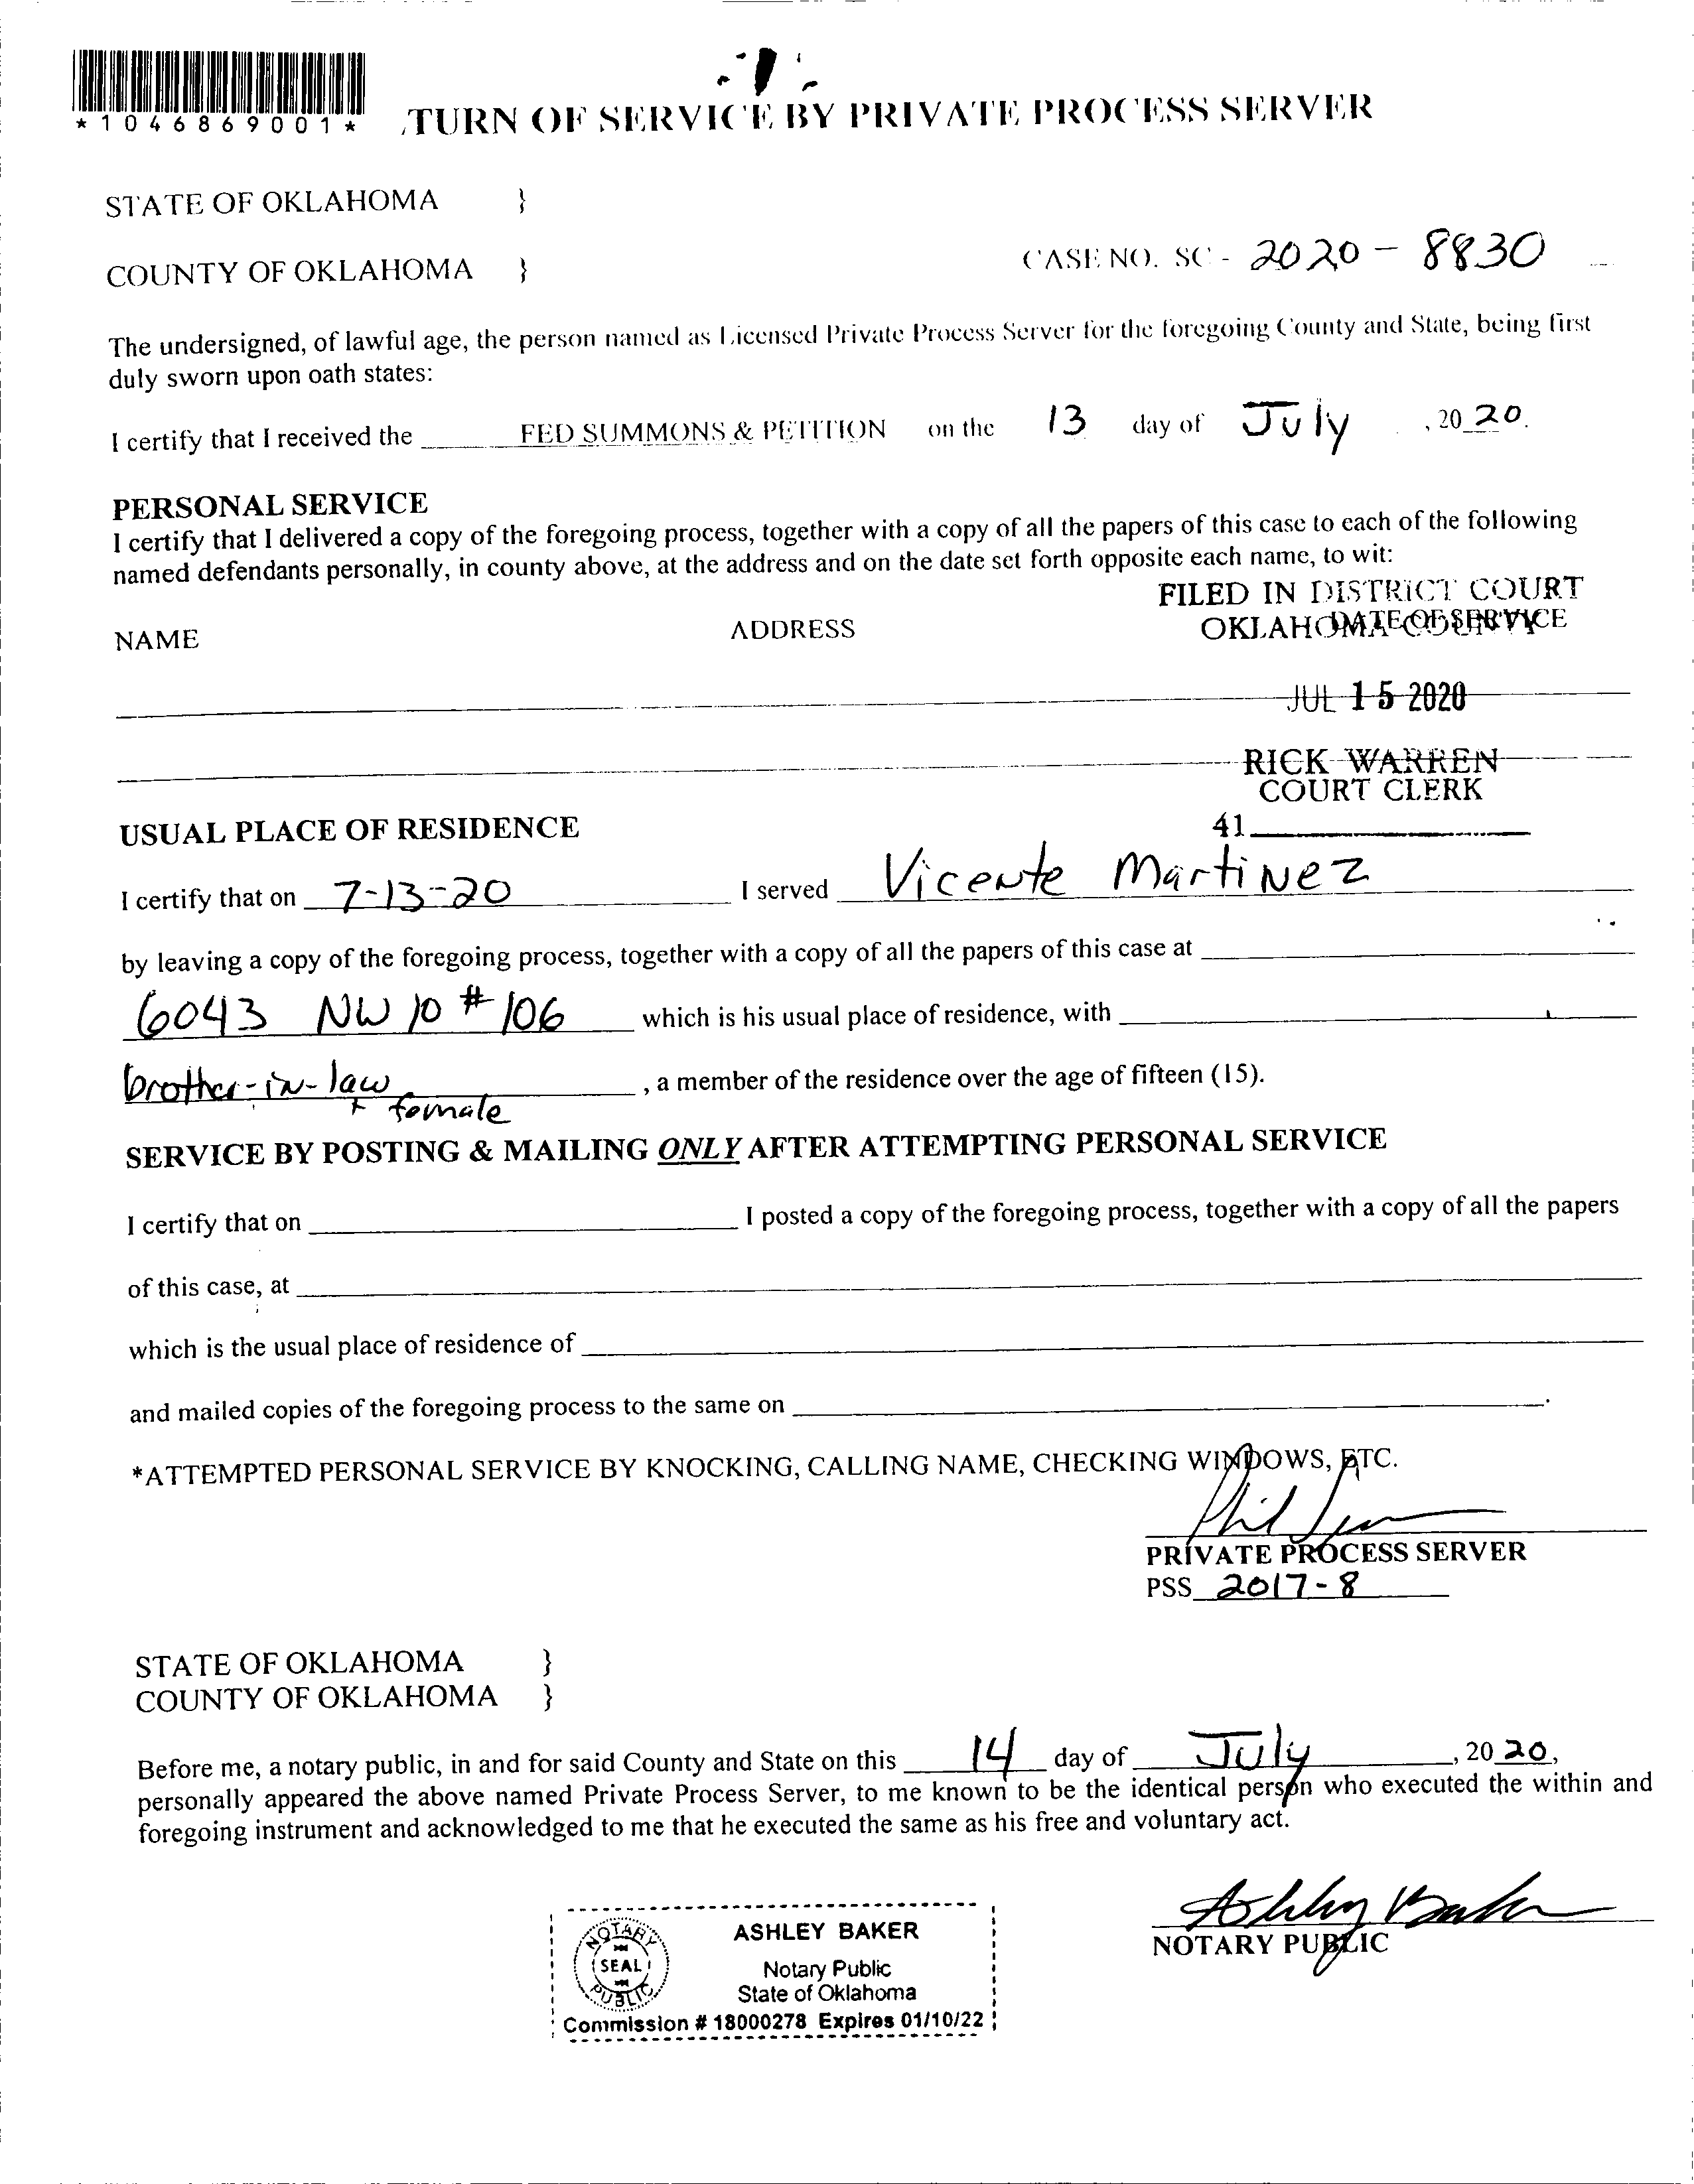 *1046869001*
TURN OF SERVICE BY PRIVATE PROCESS SERVER
STATE OF OKLAHOMA }
COUNTY OF OKLAHOMA }
CASE NO. SC - 2020 - 8830
The undersigned, of lawful age, the person named as Licensed Private Process Server for the foregoing County and State, being first
duly sworn upon oath states:
I certify that I received the FED SUMMONS & PETITION on the 13 day of July , 20 20.
PERSONAL SERVICE
I certify that I delivered a copy of the foregoing process, together with a copy of all the papers of this case to each of the following
named defendants personally, in county above, at the address and on the date set forth opposite each name, to wit:
FILED IN DISTRICT COURT
OKLAHOMA COUNTY
NAME ADDRESS DATE OF SERVICE
JUL 15 2020
RICK WARREN
COURT CLERK
41
USUAL PLACE OF RESIDENCE
I certify that on 7-13-20 I served Vicente Martinez
by leaving a copy of the foregoing process, together with a copy of all the papers of this case at
6043 NW 10 # 106 which is his usual place of residence, with
brother-in-law , a member of the residence over the age of fifteen (15).
+ female
SERVICE BY POSTING & MAILING ONLY AFTER ATTEMPTING PERSONAL SERVICE
I certify that on I posted a copy of the foregoing process, together with a copy of all the papers
of this case, at
which is the usual place of residence of
and mailed copies of the foregoing process to the same on .
*ATTEMPTED PERSONAL SERVICE BY KNOCKING, CALLING NAME, CHECKING WINDOWS, ETC.
Phil
PRIVATE PROCESS SERVER
PSS 2017-8
STATE OF OKLAHOMA }
COUNTY OF OKLAHOMA }
Before me, a notary public, in and for said County and State on this 14 day of July , 20 20,
personally appeared the above named Private Process Server, to me known to be the identical person who executed the within and
foregoing instrument and acknowledged to me that he executed the same as his free and voluntary act.
Ashley Baker
NOTARY PUBLIC
NOTARY SEAL PUBLIC
ASHLEY BAKER
Notary Public
State of Oklahoma
Commission # 18000278 Expires 01/10/22